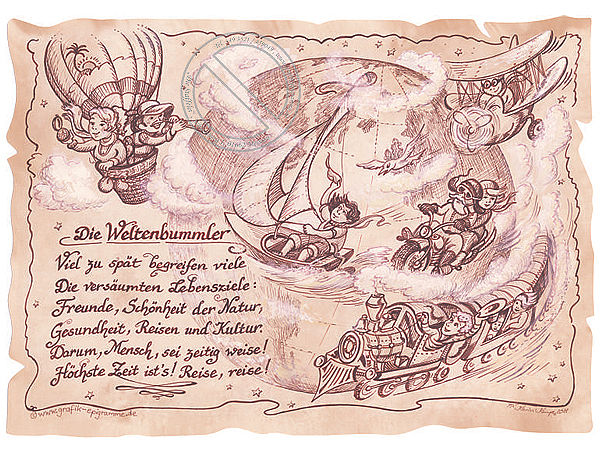 Die Weltenbummler
Viel zu spät begreifen viele
Die versäumten Lebensziele:
Freunde, Schönheit der Natur,
Gesundheit, Reisen und Kultur.
Darum, Mensch, sei zeitig weise!
Höchste Zeit ist's! Reise, reise!
©www.grafik-epigramme.de